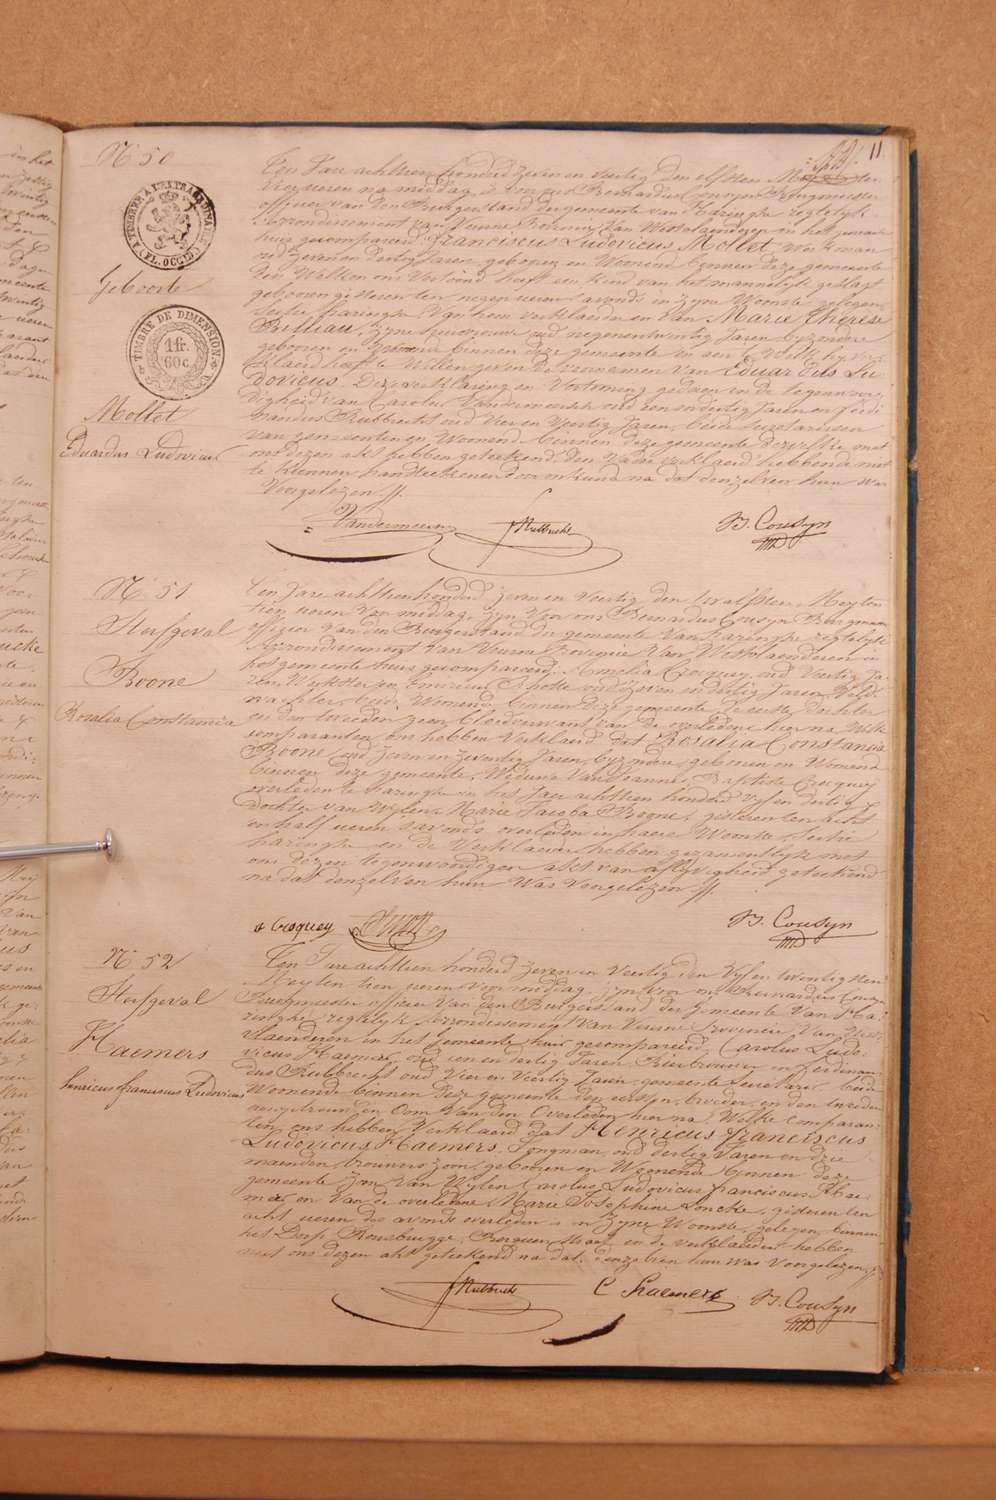 11
N° 50
Geboorte
Mollet
Eduardus Ludovicus
TIMBRE A L'EXTRAORDINAIRE
(FL. OCCID)
TIMBRE DE DIMENSION
1 fr.
60 c
Ten Jare achttien honderd zeven en veertig den elfsten Meij ten
Vier ueren na middag, is voor ons Bernardus Cousyn Burgmeester
officier van den Burgerstand der gemeente van Haringhe regtelijk
arrondissement van Veurne Provincie van Westvlaenderen in het gemeente
huis gecompareerd, Franciscus Ludovicus Mollet, Werkman
oud zeven en dertig Jaren, geboren en Woonend binnen deze gemeente
den Welken ons Verklaerd heeft een kind van het mannelijk geslagt
geboren gisteren ten negen ueren 'savonds in zyne Woonste gelegen
Sectie haringhe, Van hem verklaerder en Van Marie Thérèse
Billiau, zyne huisvrouw oud negenentwintig Jaren byzondere
geboren en Woonende binnen deze gemeente en aen 't Welk hy ver-
klaerd heeft te Willen geven de Voornamen Van Eduardus Lu-
dovicus. Deze verklaring en Vertooning gedaen in de tegenwoor-
digheid van Carolus Vandermeersch oud een en dertig Jaren en Ferdi
nandus Rubbrecht oud Vier en Veertig Jaren, beide Secretarissen
van gemeenten en Woonend binnen deze gemeente dezelfde met
ons dezen akt hebben geteekend, den Vader verklaerd hebbende niet
te kunnen handteekenen door onkunde na dat denzelven hun Was
Voorgelezen ƒƒ.
Vandermeersch
F Rubbrecht
B. Cousyn
N° 51
Sterfgeval
Boone
Rosalia Constantia
Ten Jare achttien honderd zeven en Veertig den twaelfsten Meij ten
tien ueren Voormiddag, zyn Voor ons Bernardus Cousyn Burgmeester
officier Van den Burgerstand der gemeente Van Haringhe regtelijk
Arrondissement Van Veurne Provincie Van Westvlaenderen in
het gemeente huis gecompareerd, Amelia Crocquey, oud Veertig Ja-
binnen deze gemeente, de eerste dochter
en den tweeden geen bloedverwant van de overledene hier na, Welke
comparanten ons hebben Verklaerd dat Rosalia Constancia
Boone oud Zeven en Zeventig Jaren, byzondere, geboren en Woonend
binnen deze gemeente, Weduwe Van Joannes Baptiste Crocquey
overleden te haringhe in het Jaer achttien honderd vyf en dertig
dochter van Wylen Marie Jacoba Boone, gisteren ten acht
en half ueren 'savonds overleden in haere Woonste, Sectie
haringhe en de Verklaerers hebben gezamentlyk met
ons dezen tegenwoordigen akt van aflyvigheid geteekend
na dat denzelven hun Was Voorgelezen ƒƒ.
A Crocquey
B. Cousyn
N° 52
Sterfgeval
Haemers
henricus franciscus Ludovicus
Ten Jare achttien honderd zeven en Veertig den Vyf en twintigsten
Meij ten tien ueren Voormiddag, zyn Voor ons Bernardus Cousyn
Burgmeester officier Van den Burgerstand der Gemeente Van Ha-
ringhe regtelijk Arrondissement Van Veurne Provincie Van West-
vlaenderen in het Gemeente huis gecompareerd, Carolus Ludo-
vicus Haemers, oud een en dertig Jaren, Bierbrouwer en Ferdinan-
dus Rubbrecht oud Vier en Veertig Jaren, gemeente Secretaris, beide
Woonende binnen deze gemeente den eersten broeder, en den tweeden
aengetrouwden Oom Van den Overleden hier na, Welke comparan-
ten ons hebben Verklaerd dat Henricus Franciscus
Ludovicus Haemers, Jongman, oud dertig Jaren en drie
maenden, brouwers zoon, geboren en Woonende binnen deze
gemeente, Zoon Van Wylen Carolus Ludovicus franciscus Hae-
mers en Van de overledene Marie Josephine Loncke, gisteren ten
acht ueren des avonds overleden in Zyne Woonste, gelegen binnen
het Dorp Rousbrugge, Berguen straet en de verklaerders hebben
met ons dezen akt geteekend na dat denzelven hun was Voorgelezen ƒƒ
F Rubbrecht
C Haemers
B. Cousyn